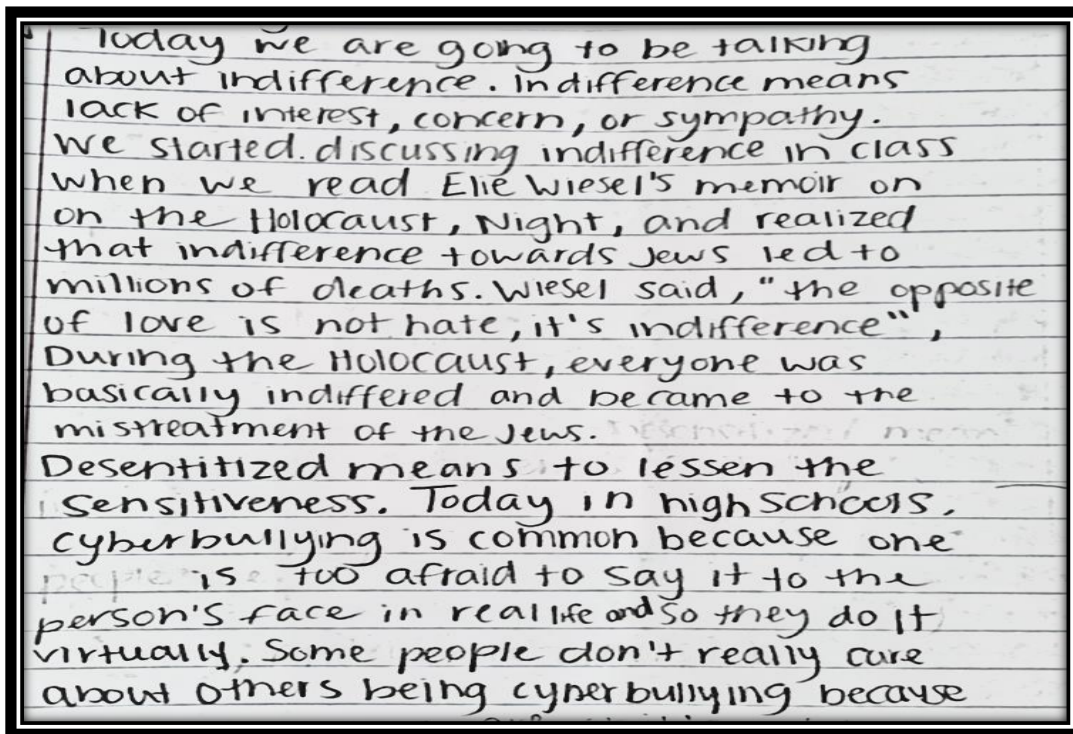 Today we are going to be talking
about indifference. Indifference means
lack of interest, concern, or sympathy.
We started. discussing indifference in class
when we read Elie Wiesel's memoir on
on the Holocaust, Night, and realized
that indifference towards Jews led to
millions of deaths. Wiesel said, "the opposite
of love is not hate, it's indifference",
During the Holocaust, everyone was
basically indiffered and became to the
mistreatment of the Jews. mean
Desentitized means to lessen the
sensitiveness. Today in high schools,
cyberbullying is common because one
people is too afraid to say it to the
person's face in real life and so they do it
virtually. Some people don't really care
about others being cyberbullying because